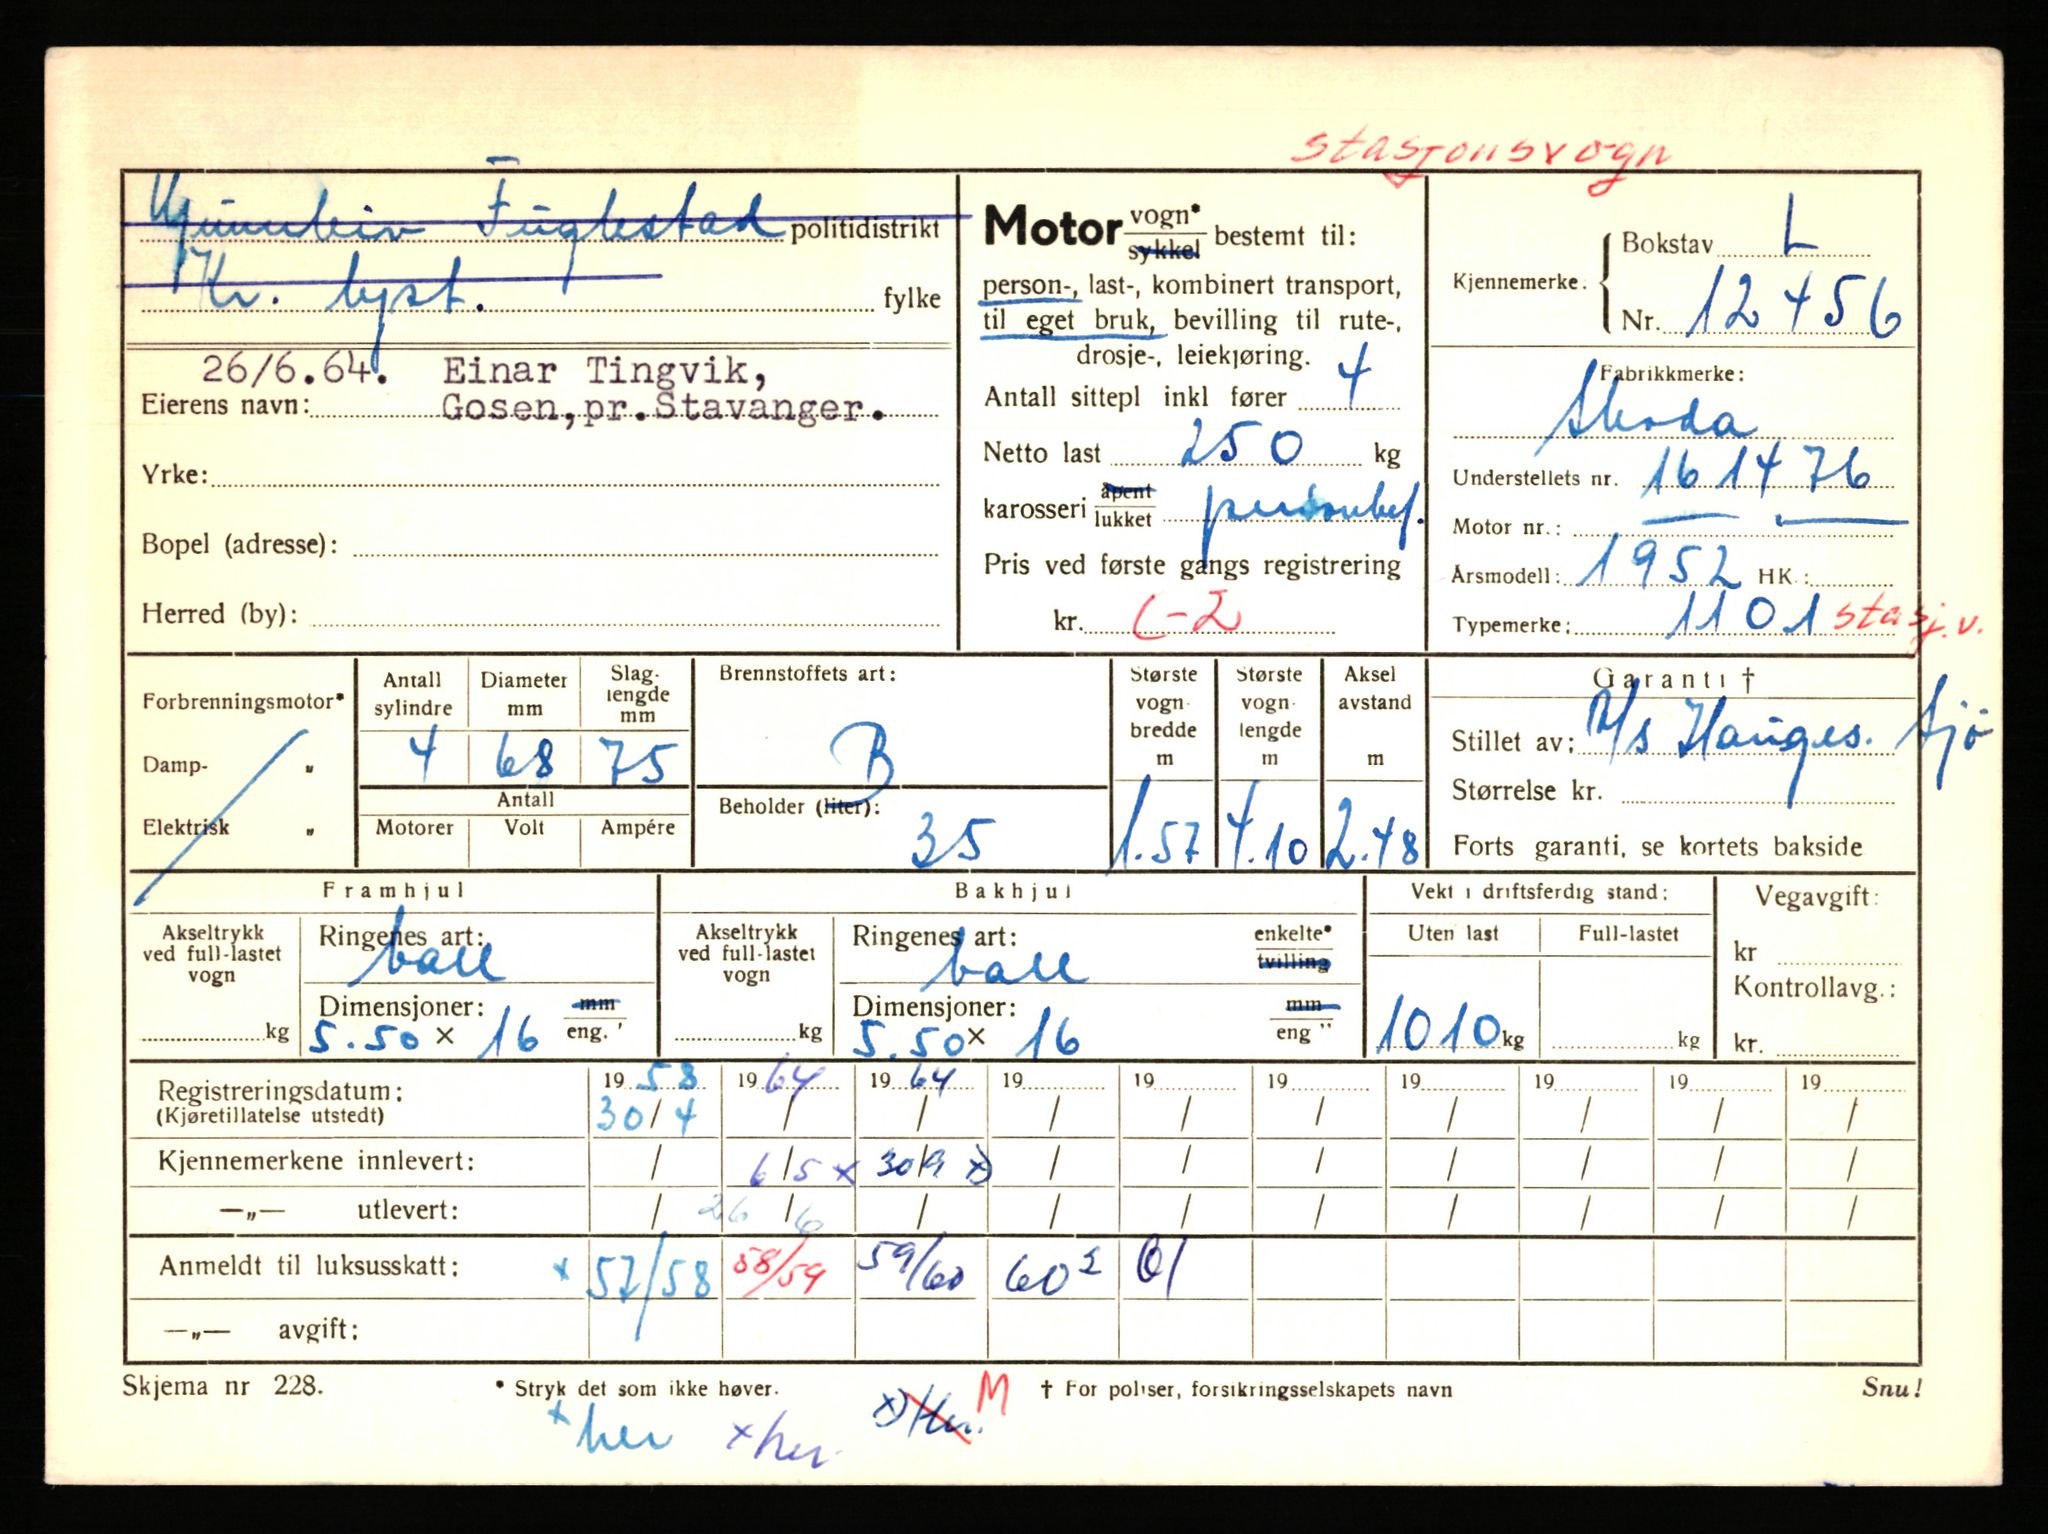 stasjonsvogn
Fuglestad politidistrikt
fylke
26/6.64. Einar Tingvik,
Eierens navn: Gosen,pr.Stavanger.
Yrke:
Bopel (adresse):
Herred (by):
Motor vogn* sykkel bestemt til:
person-, last-, kombinert transport,
til eget bruk, bevilling til rute-,
drosje-, leiekjøring.
Antall sittepl inkl fører 4
Netto last 250 kg
karosseri åpent lukket personbef.
Pris ved første gangs registrering
kr.
Kjennemerke. Bokstav L
Nr. 12456
Fabrikkmerke:
Skoda
Understellets nr. 161476
Motor nr.:
Årsmodell: 1952 HK:
Typemerke: 1101 stasj.v.
Forbrenningsmotor*
Damp- "
Elektrisk "
Antall sylindre 4
Diameter mm 68
Slag-lengde mm 75
Antall
Motorer Volt Ampére
Brennstoffets art: B
Beholder (liter): 35
Største vogn-bredde m 1.57
Største vogn-lengde m 4.10
Aksel avstand m 2.48
Garanti †
Stillet av: A/s Hauges. Sjø
Størrelse kr.
Forts garanti, se kortets bakside
Framhjul
Akseltrykk ved full-lastet vogn
kg
Ringenes art: ball
Dimensjoner: mm
5.50 x 16 eng."
Bakhjul
Akseltrykk ved full-lastet vogn
kg
Ringenes art: ball enkelte* tvilling
Dimensjoner: mm
5.50 x 16 eng "
Vekt i driftsferdig stand:
Uten last Full-lastet
1010 kg kg
Vegavgift:
kr
Kontrollavg.:
kr.
Registreringsdatum: 1958 1964 1964 19 19 19 19 19 19 19
(Kjøretillatelse utstedt) 30/4 / / / / / / / / /
Kjennemerkene innlevert: / 6/5 x 30/9 x) / / / / / / /
—„— utlevert: / 26/6 / / / / / / / /
Anmeldt til luksusskatt: x 57/58 58/59 59/60 60² 61
—„— avgift:
Skjema nr 228. * Stryk det som ikke høver. † For poliser, forsikringsselskapets navn Snu!
x her x her x) her. M